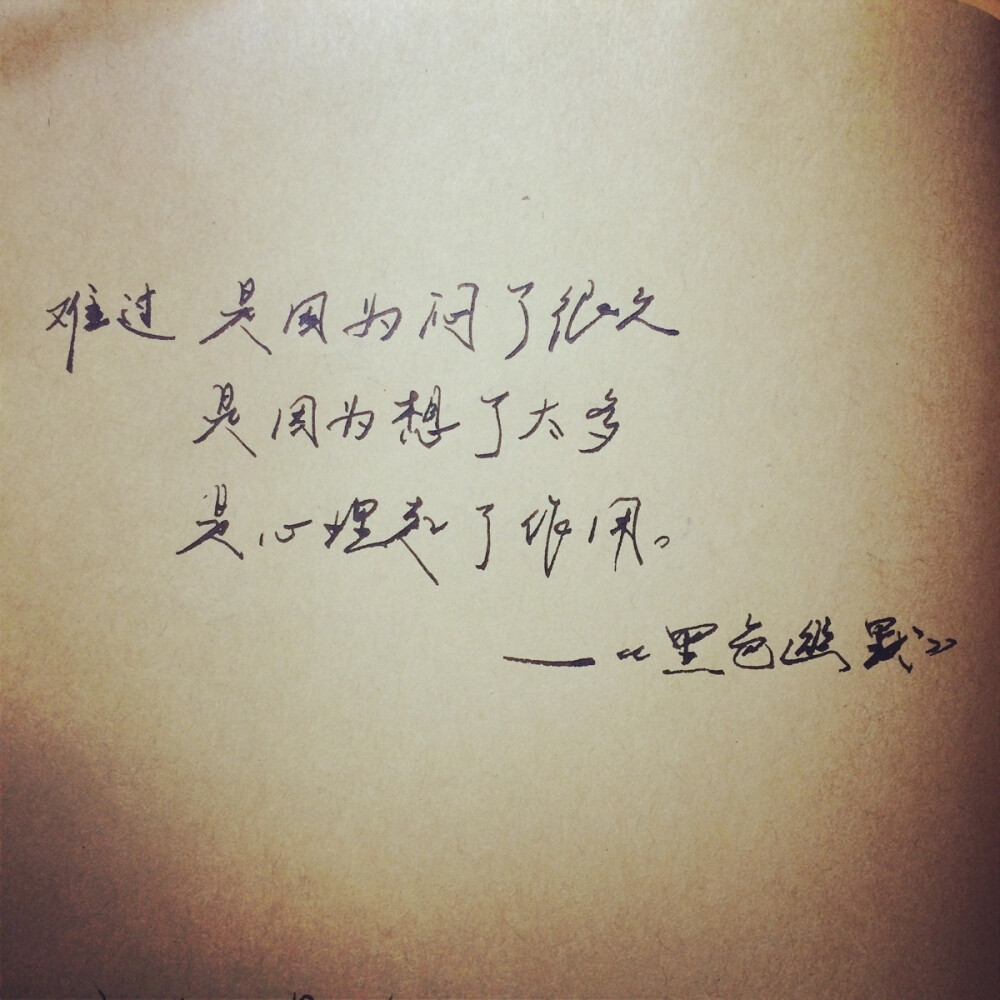 难过 是因为闷了很久
是因为想了太多
是心理起了作用。
—《黑色幽默》